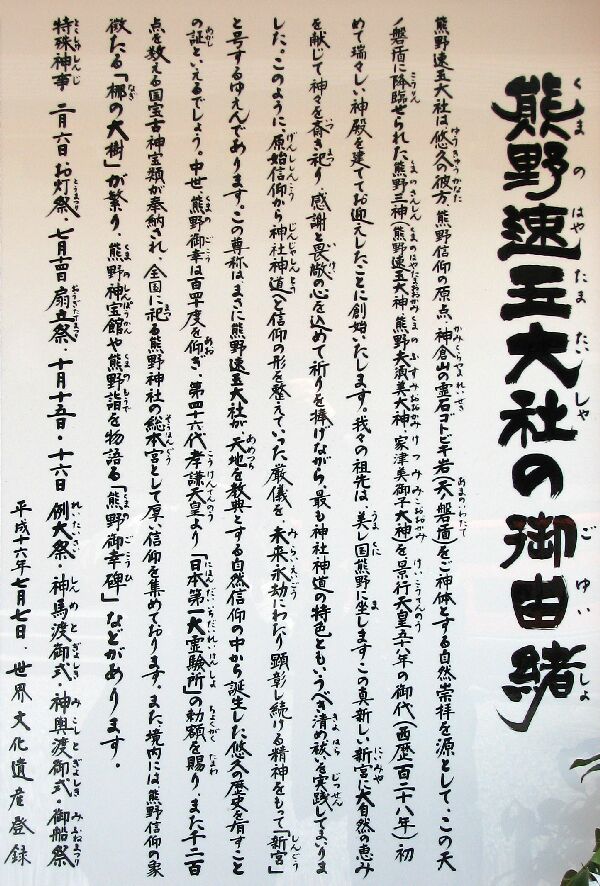 熊野速玉大社の御由緒
熊野速玉大社は、悠久の彼方、熊野信仰の原点、神倉山の霊石ゴトビキ岩(天ノ磐盾)をご神体とする自然崇拝を源として、この天
ノ磐盾に降臨せられた熊野三神(熊野速玉大神・熊野夫須美大神・家津美御子大神)を景行天皇五十八年の御代(西歴一百二十八年)初
めて瑞々しい神殿を建ててお迎えしたことに創始いたします。我々の祖先は、美し国熊野に坐しますこの真新しい新宮に大自然の恵み
を献じて神々を斎き祀り、感謝と畏敬の心を込めて祈りを捧げながら、最も神社神道の特色ともいうべき清め祓いを実践してまいりま
した。このように、原始信仰から神社神道へと信仰の形を整えていった厳儀を、未来永劫にわたり顕彰し続ける精神をもって「新宮」
と号するゆえんであります。この尊称は、まさに熊野速玉大社が、天地を教典とする自然信仰の中から誕生した悠久の歴史を有すこと
の証といえるでしょう。中世、熊野御幸は百四十度を仰ぎ、第四十六代孝謙天皇より「日本第一大霊験所」の勅額を賜り、また千二百
点を数える国宝古神宝類が奉納され、全国に祀る熊野神社の総本宮として厚い信仰を集めております。また境内には熊野信仰の象
徴たる「梛の大樹」が繁り、熊野神宝館や熊野詣を物語る「熊野御幸碑」などがあります。
特殊神事 二月六日お灯祭・七月十四日扇立祭・十月十五日・十六日例大祭・神馬渡御式・神輿渡御式・御船祭
平成十六年七月七日、世界文化遺産登録